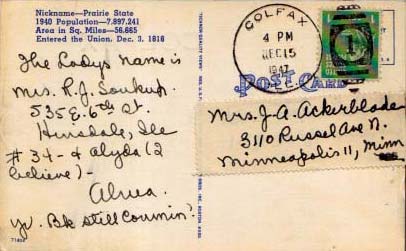 Nickname—Prairie State
1940 Population—7,897,241
Area in Sq. Miles—56,665
Entered the Union, Dec. 3, 1818
The Ladys name is
Mrs. R.J. Soukup
535 E. 6th St.
Hinsdale, Ill
# 34 - & Alyda (I
believe) -
Alvera.
yr. Bk still comin'!
COLFAX
4 PM
DEC 15
1947
ILL.
1
POST CARD
Mrs. J. A. Ackerblade
3110 Russel Ave N.
Minneapolis 11, Minn